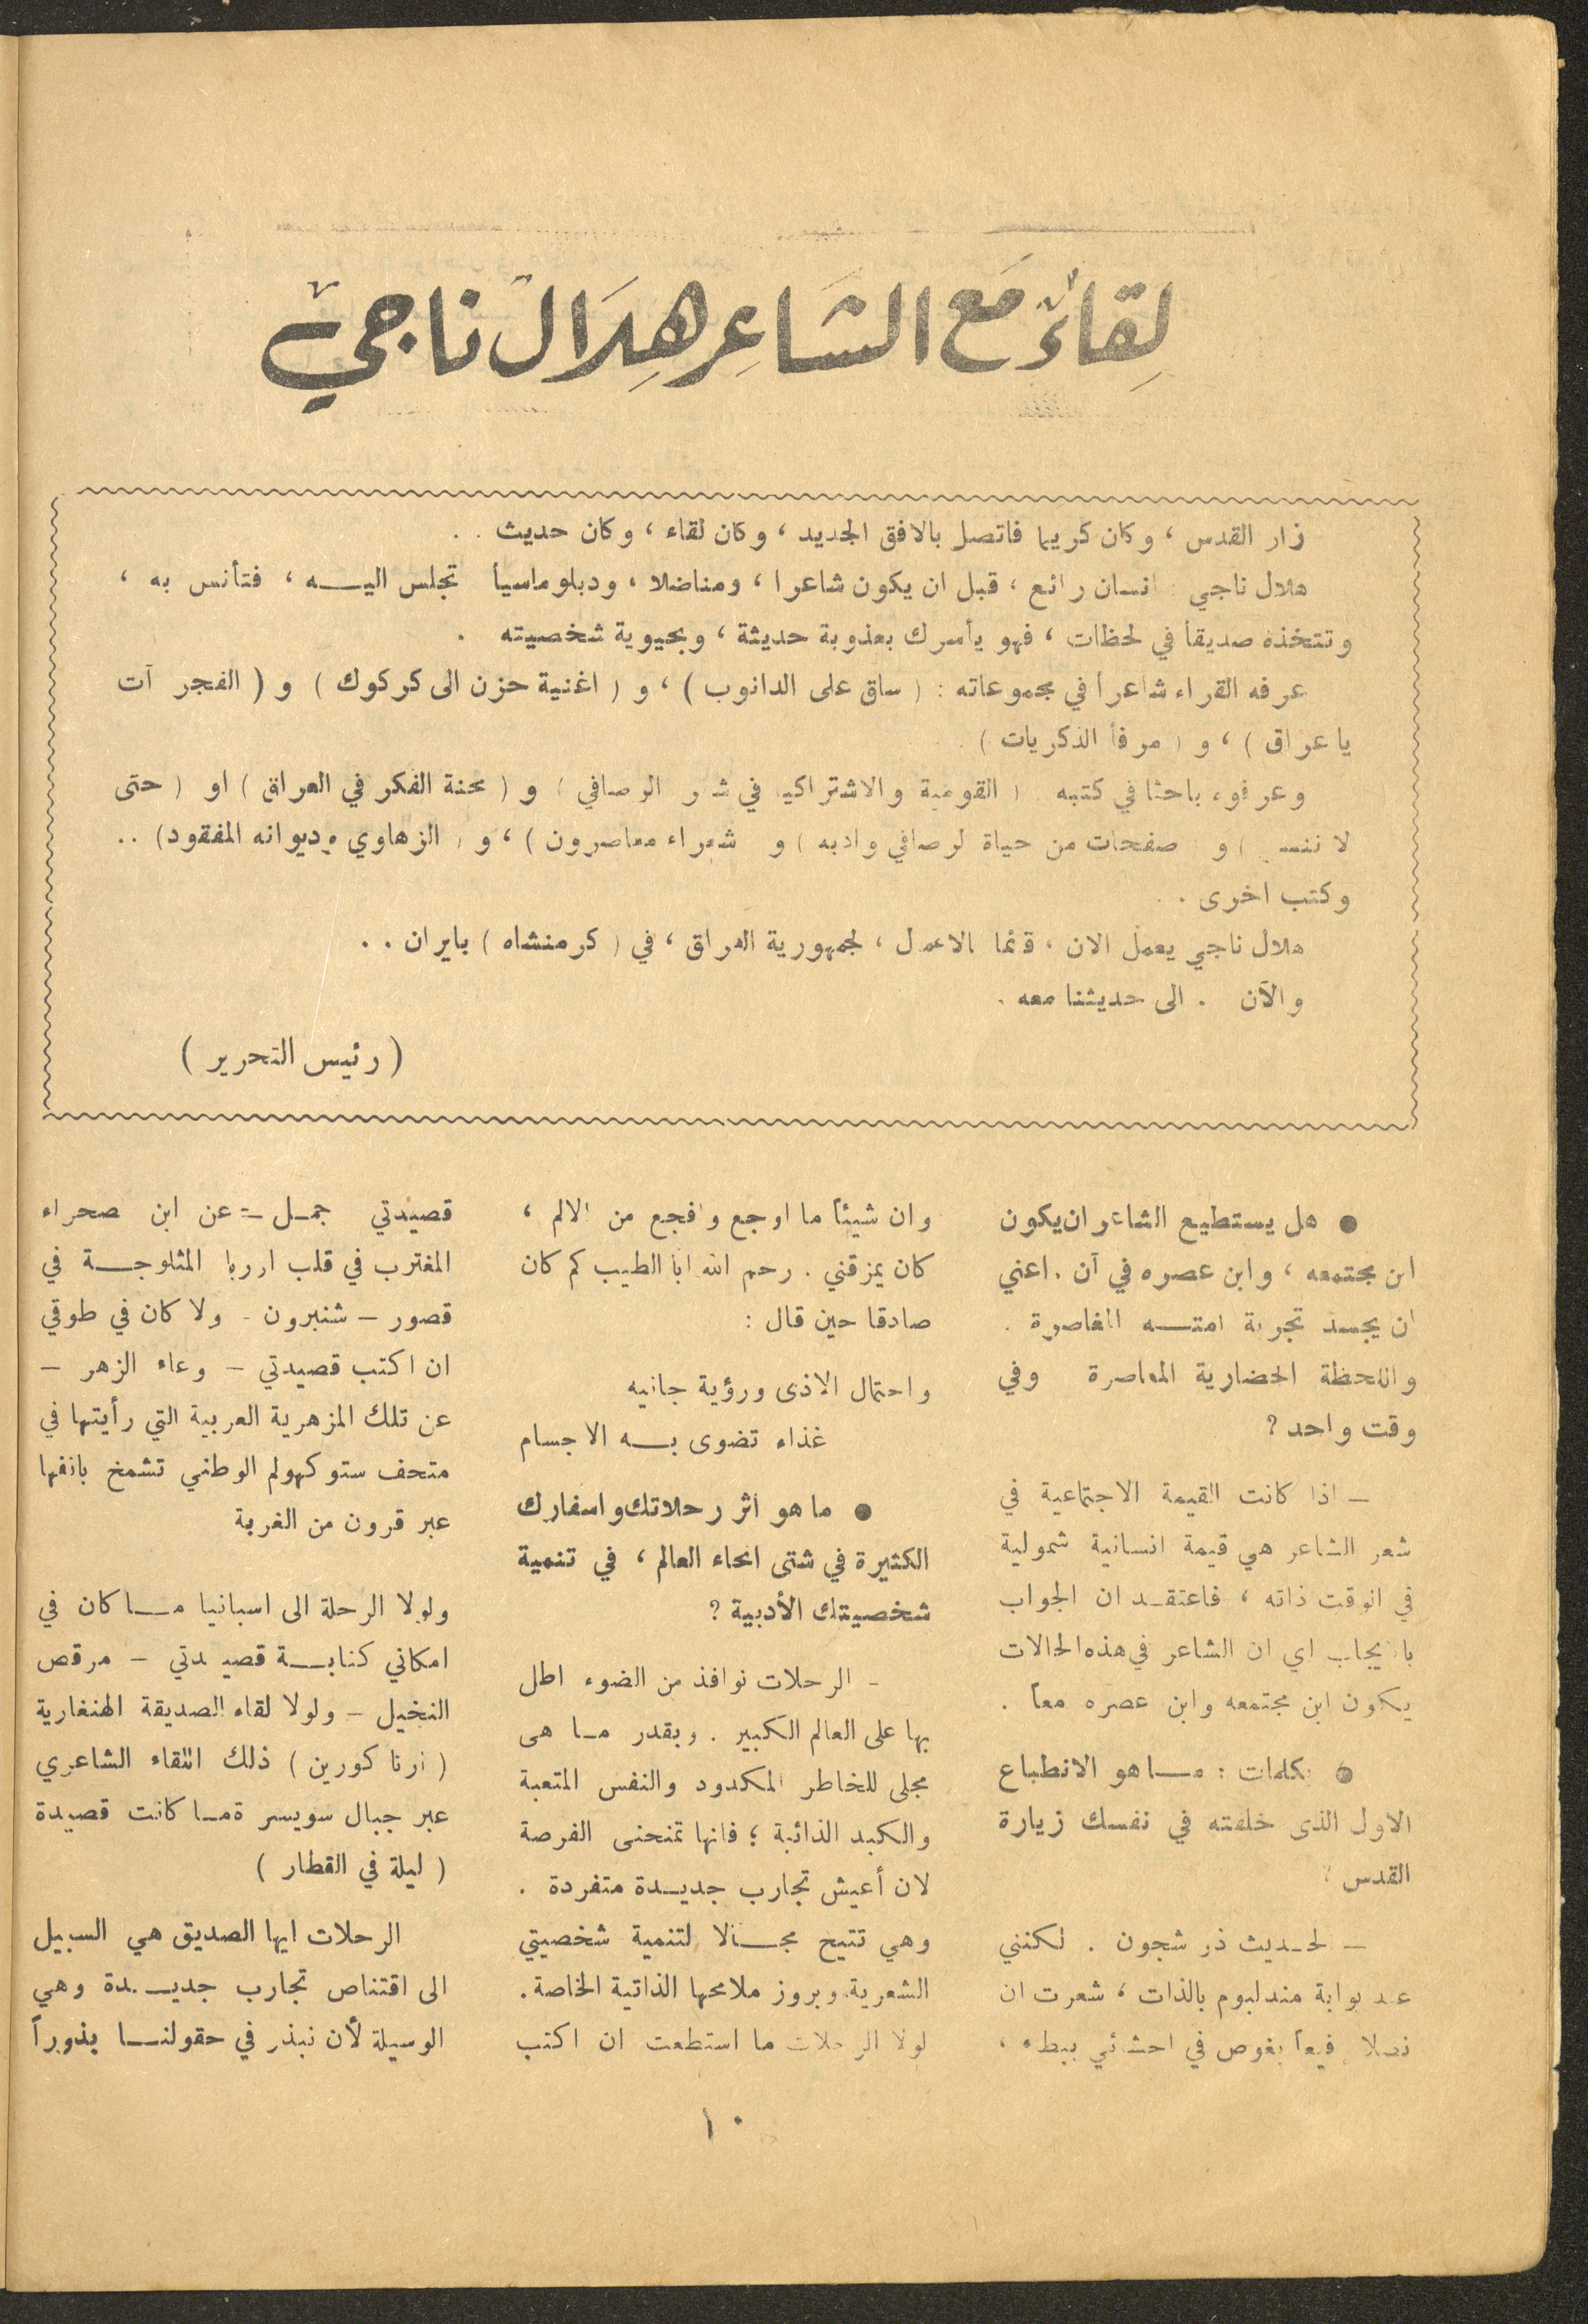 لِقاءٌ مَع الشَاعِر هِلَال ناجي
زار القدس ، وكان كريما فاتصل بالافق الجديد ، وكان لقاء ، وكان حديث . .
هلال ناجي : انسان رائع ، قبل ان يكون شاعرا ، ومناضلا ، ودبلوماسياً تجلس اليه ، فتأنس به ،
وتتخذه صديقاً في لحظات ، فهو يأسرك بعذوبة حديثة ، وبحيوية شخصيته .
عرفه القراء شاعراً في مجموعاته : ( ساق على الدانوب ) ، و ( اغنية حزن الى كركوك ) و ( الفجر آت
يا عراق ) ، و ( مرفأ الذكريات ) .
وعرفوه باحثا في كتبه ( القومية والاشتراكية في شعر الرصافي ) و ( محنة الفكر في العراق ) او ( حتى
لا ننسى ) و ( صفحات من حياة الرصافي وادبه ) و شعراء معاصرون ) ، و ( الزهاوي وديوانه المفقود ) . .
وكتب اخرى . .
هلال ناجي يعمل الان ، قائما بالاعمال ، لجمهورية العراق ، في ( كرمنشاه ) بايران . .
والآن . الى حديثنا معه .
( رئيس التحرير )
● هل يستطيع الشاعر ان يكون
ابن مجتمعه ، وابن عصره في آن . اعني
ان يجسد تجربة امته المعاصرة .
واللحظة الحضارية المعاصرة وفي
وقت واحد ؟
– اذا كانت القيمة الاجتماعية في
شعر الشاعر هي قيمة انسانية شمولية
في الوقت ذاته ، فاعتقد ان الجواب
بالايجاب اي ان الشاعر في هذه الحالات
يكون ابن مجتمعه وابن عصره معاً .
● بكلمات : ما هو الانطباع
الاول الذى خلفته في نفسك زيارة
القدس ؟
– لحديث ذو شجون . لكنني
عند بوابة مندلبوم بالذات ، شعرت ان
نصلا رفيعاً يغوص في احشائي ببطء ،
وان شيئاً ما اوجع وافجع من الالم ،
كان يمزقني . رحم الله ابا الطيب كم كان
صادقا حين قال :
واحتمال الاذى ورؤية جانيه
غذاء تضوى به الاجسام
● ما هو أثر رحلاتك واسفارك
الكثيرة في شتى انحاء العالم ، في تنمية
شخصيتك الأدبية ؟
– الرحلات نوافذ من الضوء اطل
بها على العالم الكبير . وبقدر ما هى
مجلى للخاطر المكدود والنفس المتعبة
والكبد الذائبة ؛ فانها تمنحنى الفرصة
لان أعيش تجارب جديدة متفردة .
وهي تتيح مجالا لتنمية شخصيتي
الشعرية وبروز ملامحها الذاتية الخاصة .
لولا الرحلات ما استطعت ان اكتب
قصيدتي جمل – عن ابن صحراء
المغترب في قلب اوربا المثلوجة في
قصور – شنبرون – ولا كان في طوقي
ان اكتب قصيدتي – وعاء الزهر –
عن تلك المزهرية العربية التي رأيتها في
متحف ستوكهولم الوطني تشمخ بانفها
عبر قرون من الغربة
ولولا الرحلة الى اسبانيا ما كان في
امكاني كتابة قصيدتي – مرقص
النخيل – ولولا لقاء الصديقة الهنغارية
( ارنا كورين ) ذلك اللقاء الشاعري
عبر جبال سويسرة ما كانت قصيدة
( ليلة في القطار )
الرحلات ايها الصديق هي السبيل
الى اقتناص تجارب جديدة وهي
الوسيلة لأن نبذر في حقولنا بذوراً
١٠